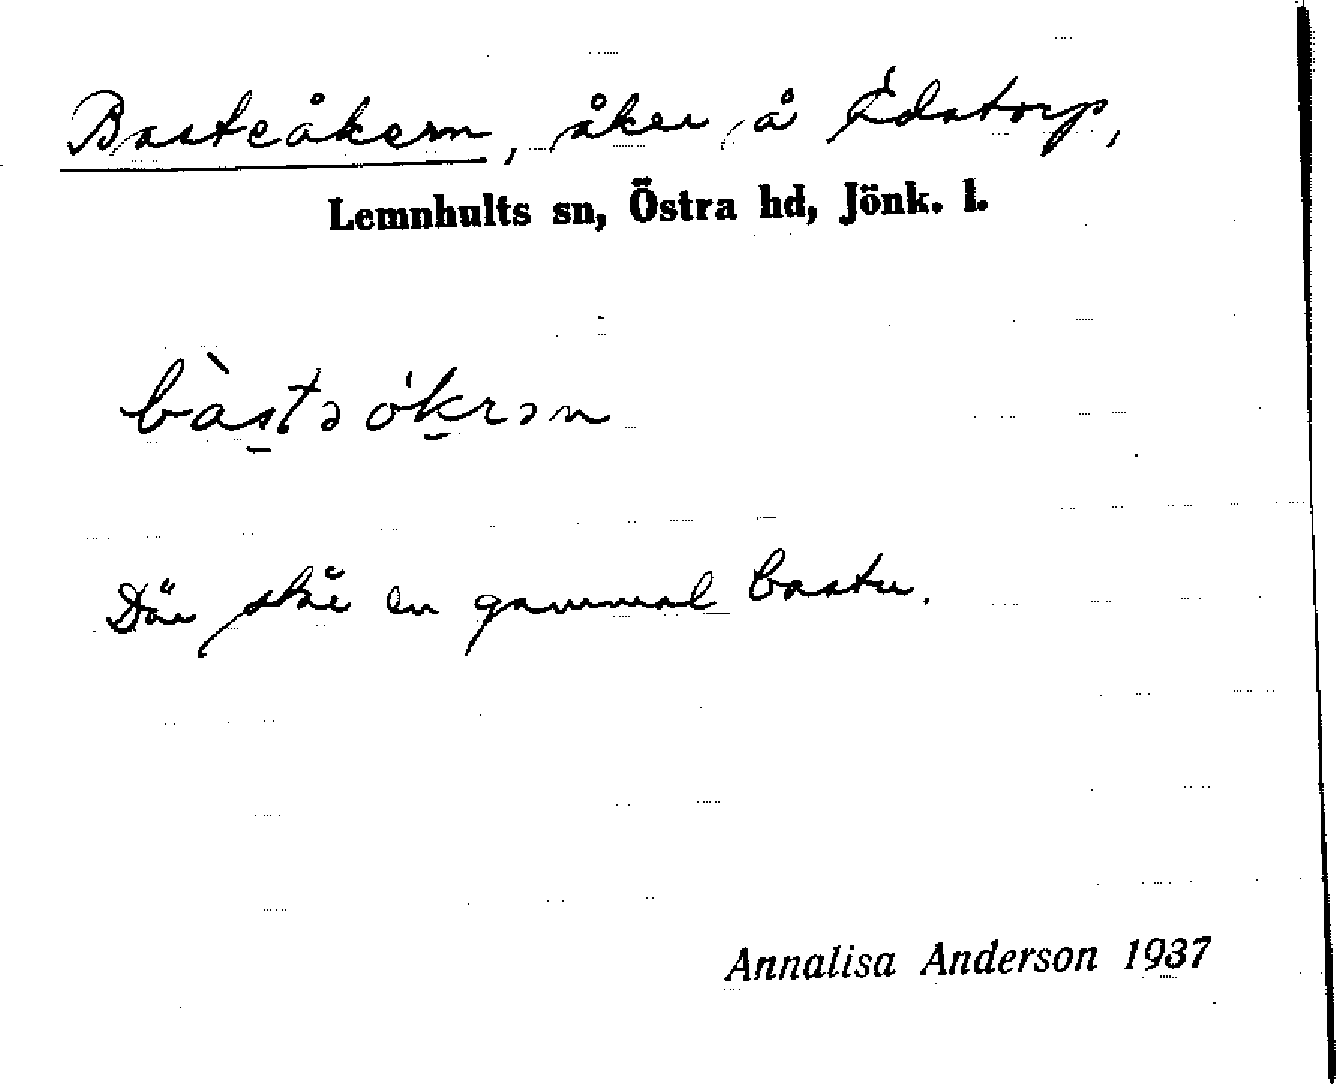 Basteåkern, åker å Edstorp,
Lemnhults sn, Östra hd, Jönk. l.
bàstə ókrən
Där står en gammal bastu.
Annalisa Anderson 1937